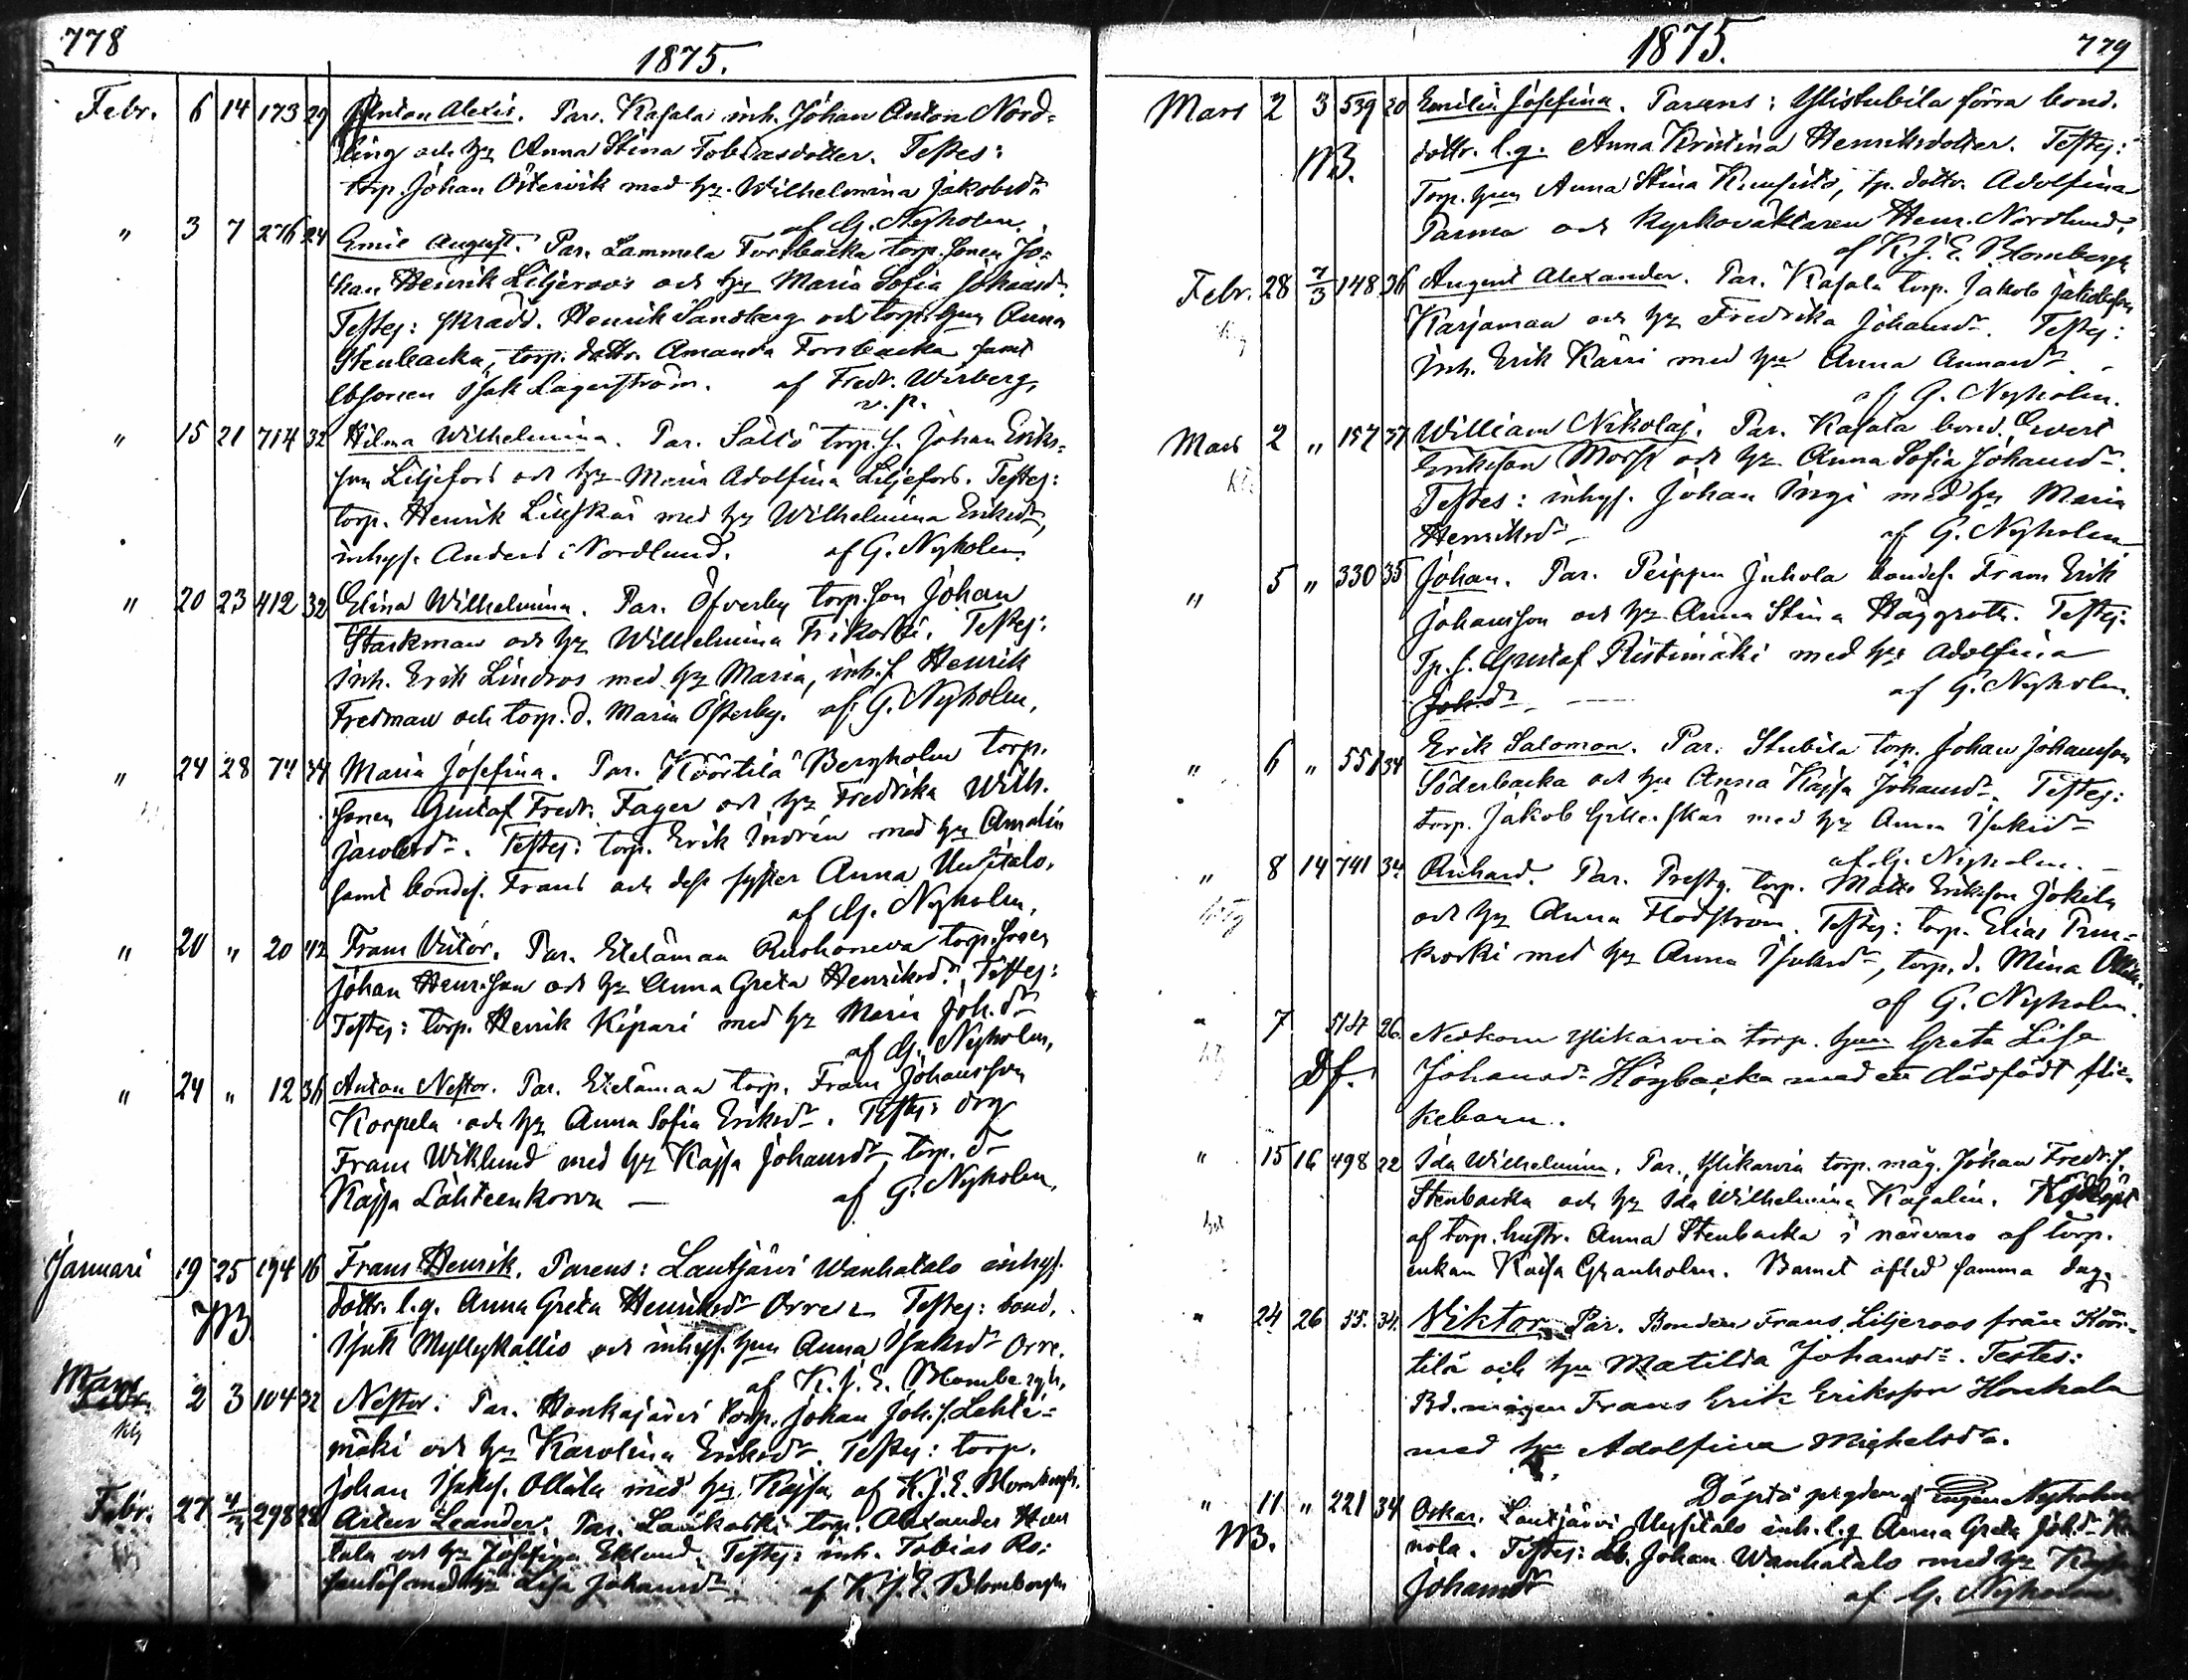 778
1875.
Febr. 6 14 173 29 Anton Alexis. Par. Kasala inh. Johan Anton Nord-
ling och hu Anna Stina Tobiasdotter. Testes:
torp. Johan Östervik med hu Wilhelmina Jakobsdr
af G. Nyholm.
" 3 7 276 24 Emil August. Par. Lammela Forsbacka torp. sonen Jo-
han Henrik Liljeroos och hu Maria Sofia Johansdr
Testes: skrädd. Henrik Sandberg och torp. hun Anna
Stenbacka, torp. dottr. Amanda Forsbacka samt
Isak Lagerström. af Fredr. Wirberg,
v. p.
" 15 21 714 32 Hilma Wilhelmina. Par. Sältö torp. s. Johan Eriks-
son Liljefors och hu Maria Adolfina Liljefors. Testes:
torp. Henrik Lillskär med hu Wilhelmina Eriksdr,
inhys. Anders Nordlund. af G. Nyholm.
" 20 23 412 32 Elina Wilhelmina. Par. Öfverby torp. son Johan
Starkman och hu Wilhelmina Frikoski. Testes:
inh. Erik Lindros med hu Maria, inh. s Henrik
Fredman och torp. d. Maria Österby. af G. Nyholm.
" 24 28 74 34 Maria Josefina. Par. Köörtilä Bergholm torp.
sonen Gustaf Fredr. Fager och hu Fredrika Wilh.
Jacobsdr. Testes: torp. Erik Indrén med hu Amalia
samt bondes. Frans och dess syster Anna Uusitalo.
af G. Nyholm.
" 20 " 20 42 Frans Victor. Par. Etelämaa Ruohoneva torp. sonen
Johan Henr. son och hu Anna Greta Henriksdr. Testes:
Testes: torp. Henrik Kipari med hu Maria Joh. dr
af G. Nyholm,
" 24 " 12 36 Anton Nestor. Par. Etelämaa torp. Frans Johansson
Korpela och hu Anna Sofia Eriksdr. Testes: drg
Frans Wiklund med hu Kajsa Johansdr, torp. dr
Kajsa Lähteenkorva — af G. Nyholm,
Januari 19 25 194 16 Frans Henrik. Parens: Lautjärvi Wanhatalo inhys.
NB dottr. l.q. Anna Greta Henriksdr Orre Testes: bond.
Isak Myllykallio och inhys. hun Anna Isaksdr Orre.
af K. J. E. Blombergh,
Mars 2 3 104 32 Nestor. Par. Honkajärvi torp. Johan Joh. s. Lahti-
mäki och hu Karolina Eriksdr. Testes: torp.
Johan Isaks. Ollila med hu Kajsa af K.J.E. Blombergh.
Febr. 27 4/3 298 28 Artur Leander. Par. Lankoski torp. Alexander
och hu Josefina Eklund. Testes: inh. Tobias Ro-
senlöf med hu Lisa Johansdr. af K. J. E. Blombergh
1875.
779
Mars 2 3 539 20 Emilia Josefina. Parens: Ylistubila förra bond.
NB. dottr. l.q. Anna Kristina Henriksdotter. Testes:
Torp. hun Anna Stina, tp. dottr. Adolfina
Parma och Kyrkoväktaren Henr. Nordlund.
af K. J. E. Blombergh
Febr. 28 7/3 148 36 August Alexander. Par. Kasala torp. Jakob Jakobsson
Karjaman och hu Fredrika Johansdr. Testes:
inh. Erik Kärri med hun Anna Annasdr.
af G. Nyholm.
Mars 2 " 157 37 William Nikolaj. Par. Kasala bond. Evert
Eriksson Morst och hu Anna Sofia Johansdr.
Testes: inhys. Johan Ingi med hu Maria
Henriksdr — af G. Nyholm
" 5 " 330 35 Johan. Par. Peippu Juhola bondes. Frans Erik
Johansson och hu Anna Stina Häggroth. Testes:
Tp. s. Gustaf Ristimäki med hu Adolfina
Joh.dr — af G. Nyholm.
" 6 " 551 34 Erik Salomon. Par. Stubila torp. Johan Johansson
Söderbacka och hu Anna Kajsa Johansdr. Testes:
torp. Jakob Gilleskär med hu Anna Isaksdr
af G. Nyholm. —
" 8 14 741 34 Richard. Par. Prestg. torp. Matts Eriksson Jokela
och hu Anna Flodström. Testes: torp. Elias
med hu Anna Isaksdr, torp. d. Mina
af G. Nyholm.
" 7 26 Nedkom Ylikarvia torp. hun Greta Lisa
Df. Johansdr Högbacka med ett dödfödt flic-
kebarn.
" 15 16 498 22 Ida Wilhelmina. Par. Ylikarvia torp. måg. Johan Fredr. s.
Stenbacka och hu Ida Wilhelmina Kasalin. Nöddöpt
af torp. hustr. Anna Stenbacka i närvaro af torp.
enkan Kaisa Granholm. Barnet afled samma dag.
" 24 26 55. 34. Viktor. Par. Bonden Frans Liljeroos från Köör-
tilä och hu Matilda Johansdr. Testes:
Bd. mågen Frans Erik Eriksson Honkala
med hu Adolfina Mickelsdr.
Döpta pigden af Nyholm
" 11 " 221 34 Oskar. Lautjärvi Uusitalo inh. l.q Anna Greta Joh.dr
NB. nola. Testes: Johan Wanhatalo med hu Kajsa
Johansdr af G. Nyholm.